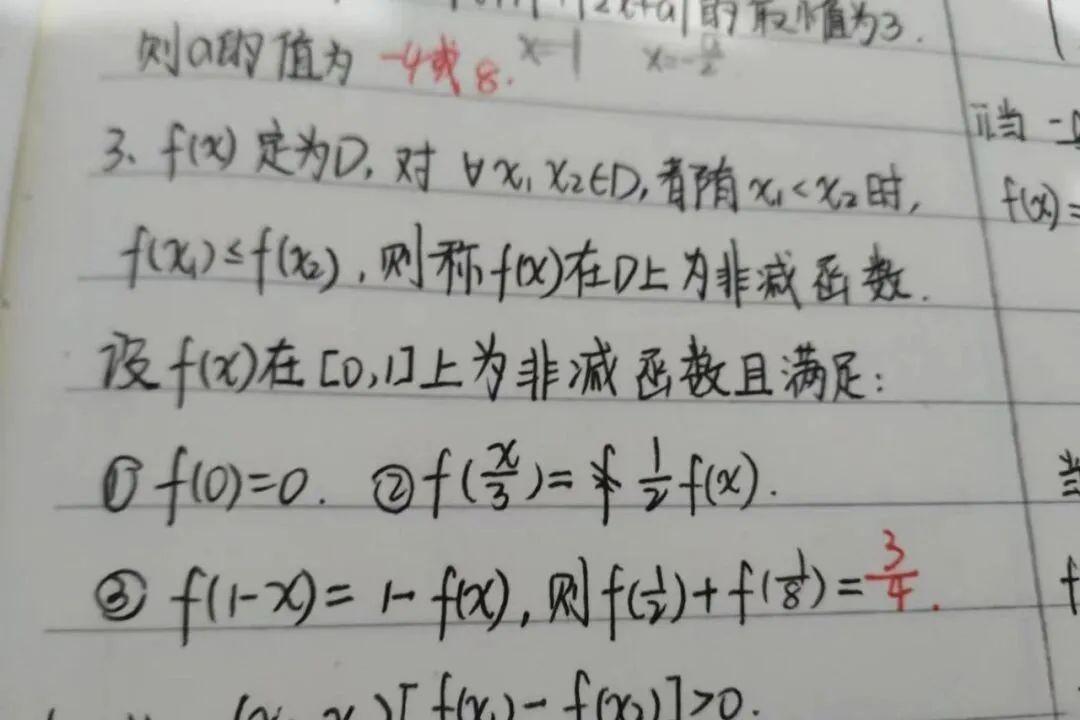 |2x+a|的最小值为3.
则a的值为 -4或8. x=-1 x=-a/2
3、f(x)定为D,对∀x₁x₂∈D,若随有x₁<x₂时,
f(x₁)≤f(x₂),则称f(x)在D上为非减函数.
设f(x)在[0,1]上为非减函数且满足:
① f(0)=0. ② f(x/3)= 1/2 f(x).
③ f(1-x)=1-f(x),则f(1/2)+f(1/8)=3/4.
[f(x₁)-f(x₂)]>0.
ii当
f(x)=
当
f